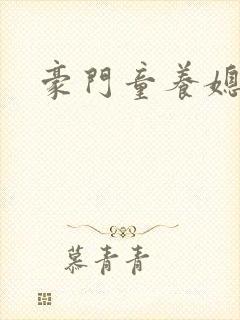 豪門童養媳
慕青青